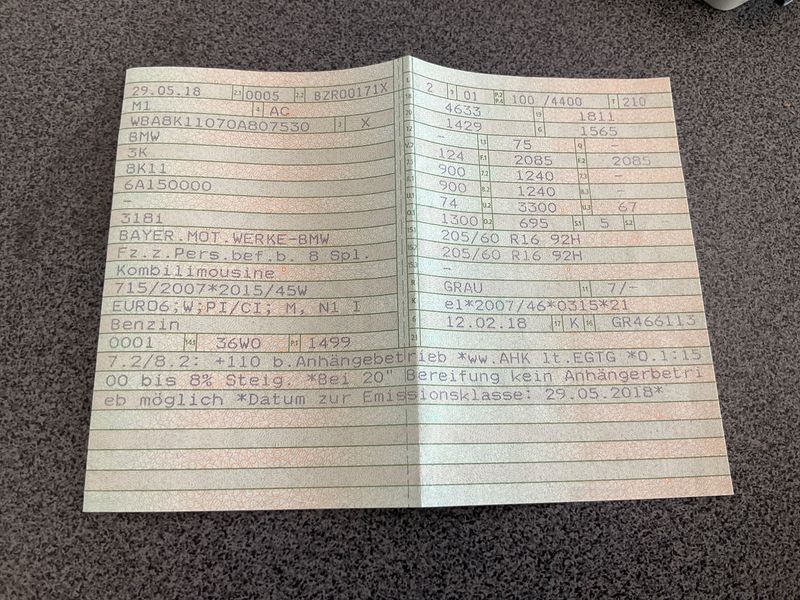 29.05.18 2.1 0005 2.2 BZR00171X
M1 4 AC
WBA8K11070A807530 3 X
BMW
3K
8K11
6A150000
–
318i
BAYER.MOT.WERKE-BMW
Fz.z.Pers.bef.b. 8 Spl.
Kombilimousine
715/2007*2015/45W
EURO6;W;PI/CI; M, N1 I
Benzin
0001 14.1 36W0 P.1 1499
L 2 9 01 P.2 P.4 100 /4400 T 210
18 4633 19 1811
20 1429 G 1565
12 – 13 75 Q –
V.7 124 F.1 2085 F.2 2085
7.1 900 7.2 1240 7.3 –
8.1 900 8.2 1240 8.3 –
U.1 74 U.2 3300 U.3 67
O.1 1300 O.2 695 S.1 5 S.2 –
15.1 205/60 R16 92H
15.2 205/60 R16 92H
15.3 –
R GRAU 11 7/–
K e1*2007/46*0315*21
6 12.02.18 17 K 16 GR466113
21
7.2/8.2: +110 b.Anhängebetrieb *ww.AHK lt.EGTG *O.1:15
00 bis 8% Steig. *Bei 20" Bereifung kein Anhängerbetri
eb möglich *Datum zur Emissionsklasse: 29.05.2018*